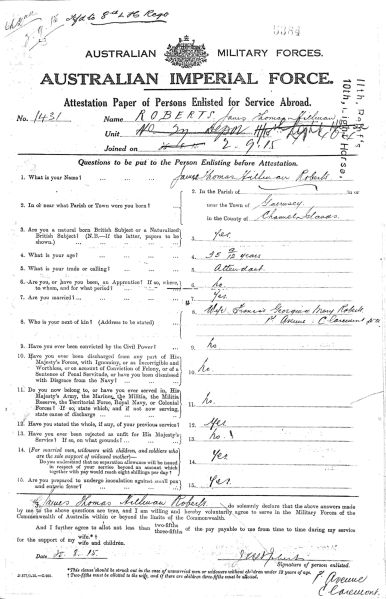 Afd to 8th L H Rego
5384
AUSTRALIAN MILITARY FORCES.
AUSTRALIAN IMPERIAL FORCE.
Attestation Paper of Persons Enlisted for Service Abroad.
No. 1431 Name ROBERTS James Thomas Hillman
Unit
Joined on 2-9-15
11th Reinf's
10th, Light Horse.
Questions to be put to the Person Enlisting before Attestation.
1. What is your Name? 1. James Thomas Hillman Roberts
2. In or near what Parish or Town were you born? 2. In the Parish of
near the Town of Guernsey
in the County of Channel Islands
3. Are you a natural born British Subject or a Naturalized British Subject? (N.B.—If the latter, papers to be shown.) 3. Yes
4. What is your age? 4. 35 years
5. What is your trade or calling? 5. Attendant
6. Are you, or have you been, an Apprentice? If so, where, to whom, and for what period? 6. no
7. Are you married? 7. Yes
8. Who is your next of kin? (Address to be stated) 8. Wife Frances Georgina Mary Roberts
P Avenue Claremont W A
9. Have you ever been convicted by the Civil Power? 9. no
10. Have you ever been discharged from any part of His Majesty's Forces, with Ignominy, or as Incorrigible and Worthless, or on account of Conviction of Felony, or of a Sentence of Penal Servitude, or have you been dismissed with Disgrace from the Navy? 10. no
11. Do you now belong to, or have you ever served in, His Majesty's Army, the Marines, the Militia, the Militia Reserve, the Territorial Force, Royal Navy, or Colonial Forces? If so, state which, and if not now serving, state cause of discharge 11. no.
12. Have you stated the whole, if any, of your previous service? 12. Yes
13. Have you ever been rejected as unfit for His Majesty's Service? If so, on what grounds? 13. no
14. (For married men, widowers with children, and soldiers who are the sole support of widowed mother)—
Do you understand that no separation allowance will be issued in respect of your service beyond an amount which together with pay would reach eight shillings per day? 14. Yes
15. Are you prepared to undergo inoculation against small pox and enteric fever? 15. Yes.
I, James Thomas Hillman Roberts do solemnly declare that the above answers made
by me to the above questions are true, and I am willing and hereby voluntarily agree to serve in the Military Forces of the
Commonwealth of Australia within or beyond the limits of the Commonwealth.
And I further agree to allot not less than two-fifths three-fifths of the pay payable to me from time to time during my service
for the support of my wife.* wife and children.
Date 8.15
Signature of person enlisted.
* This clause should be struck out in the case of unmarried men or widowers without children under 18 years of age.
† Two-fifths must be allotted to the wife, and if there are children three-fifths must be allotted.
P Avenue
Claremont.